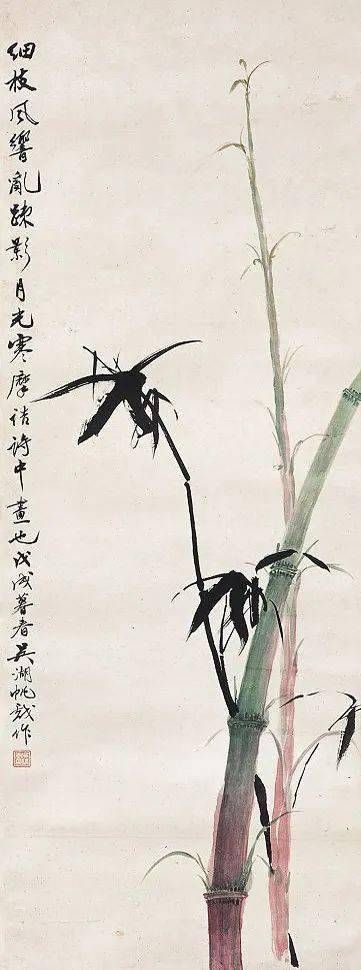 细枝风響亂疎影月光寒摩诘诗中畫也戊戌暮春吴湖帆戏作